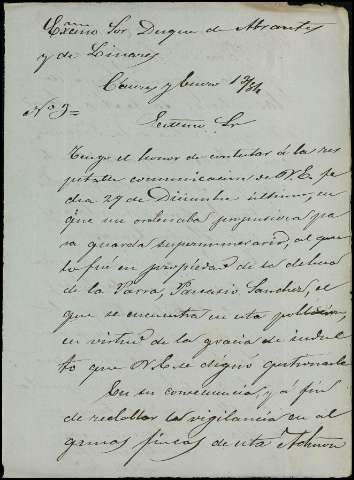 Excmo Sor Duque de Abrantes
y de Linares
Cáceres y Enero 13/84
No 3=
Excmo Sr
Tengo el honor de contestar á la res
petable comunicacion de V.E. fe
cha 29 de Diciembre último, en
que me ordenaba propusiera pa
ra guarda supernumerario, al que
lo fué en propiedad de la dehesa
de la Parra, Sanchez, el
que se encuentra en esta poblacion,
en virtud de la gracia de indul
to que V.E. se dignó gestionarle
En su consecuencia, y á fin
de redoblar la vigilancia en al
gunas fincas de esta Admon